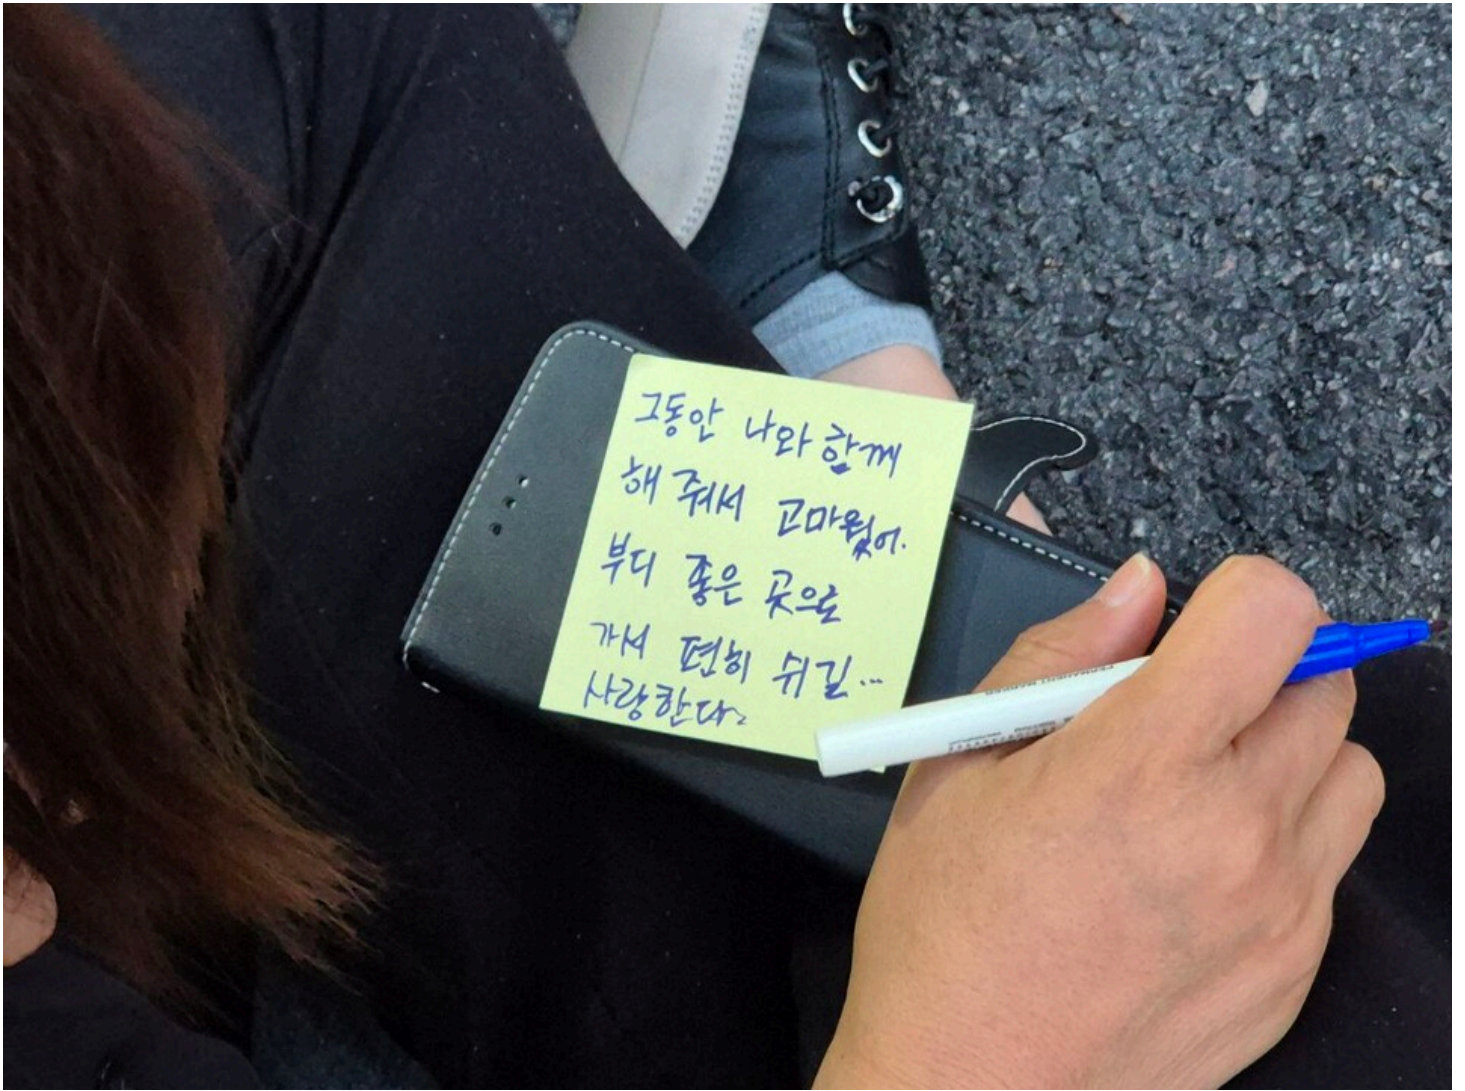 그동안 나와 함께
해 줘서 고마웠어.
부디 좋은 곳으로
가서 편히 쉬길...
사랑한다.